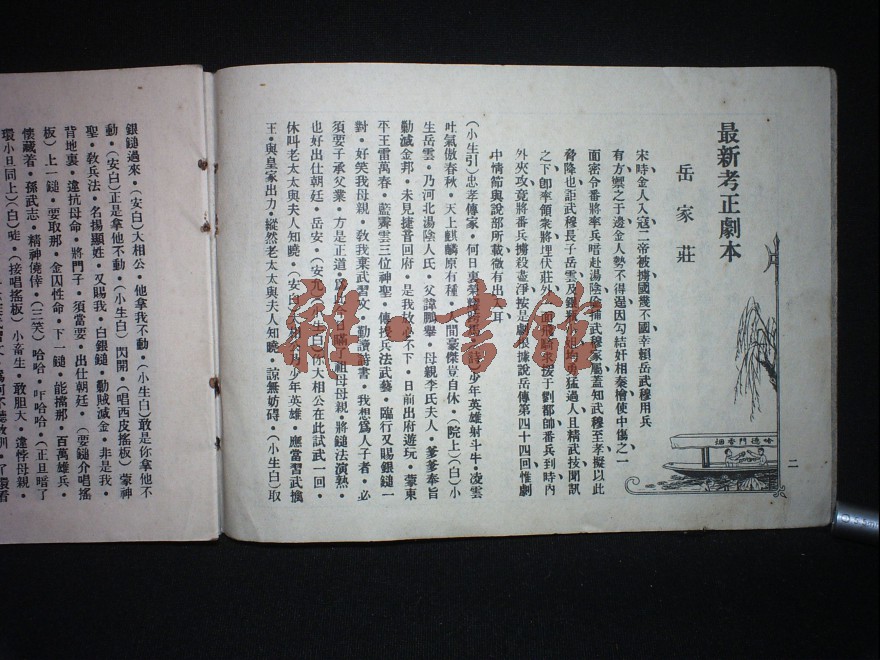 最新考正劇本
岳家莊
宋時金人入寇二帝被擄國幾不國幸賴岳武穆用兵
有方禦之于邊金人勢不得逞因勾結奸相秦檜使中傷之一
面密令番將率兵暗赴湯陰
捕武穆家屬蓋知武穆至孝擬以此
脅降也詎武穆長子岳雲及銀
勇猛過人且精武技聞訊
之下卽率領衆將埋伏莊外
求援于劉都帥番兵到時內
外夾攻竟將番兵擄殺盡淨按是劇根據說岳傳第四十四回惟劇
中情節與說部所載微有出入耳
二
哈德門香烟
(小生引)忠孝傳家·何日裏
少年英雄射斗牛·凌雲
吐氣倣春秋·天上麒麟原有種·
間豪傑豈自休·(院上)(白)小
生岳雲·乃河北湯陰人氏·父諱鵬舉·母親李氏夫人·爹爹奉旨
勦滅金邦·未見捷音回府·是我放心不下·日前出府遊玩·蒙東
平王雷萬春·藍霽雲三位神聖·傳授兵法武藝·臨行又賜銀鎚一
對·好笑我母親·敎我棄武習文·勤讀詩書·我想爲人子者·必
須要子承父業·方是正道·
今日瞞了祖母母親·將鎚法演熟·
也好出仕朝廷·岳安·(安
小生白)你大相公在此試武一回·
休叫老太太與夫人知曉·(安白)
少年英雄·應當習武擒
王·與皇家出力·縱然老太太與夫人知曉·諒無妨碍·(小生白)取
銀鎚過來·(安白)大相公·他拿我不動·(小生白)敢是你拿他不
動·(安白)正是拿他不動·(小生白)閃開·(唱西皮搖板)蒙神
聖·敎兵法·名揚顯姓·又賜我·白銀鎚·勦賊滅金·非是我·
背地裏·違抗母命·將門子·須當要·出仕朝廷·(耍鎚介唱搖
板)上一鎚·要取那·金囚性命·下一鎚·能擋那·百萬雄兵·
懷藏着·孫武志·精神僥倖·(三笑)哈哈·吓哈哈·(正旦暗了
環小旦同上)(白)唗·(接唱搖板)小畜生·敢胆大·違悖母親·